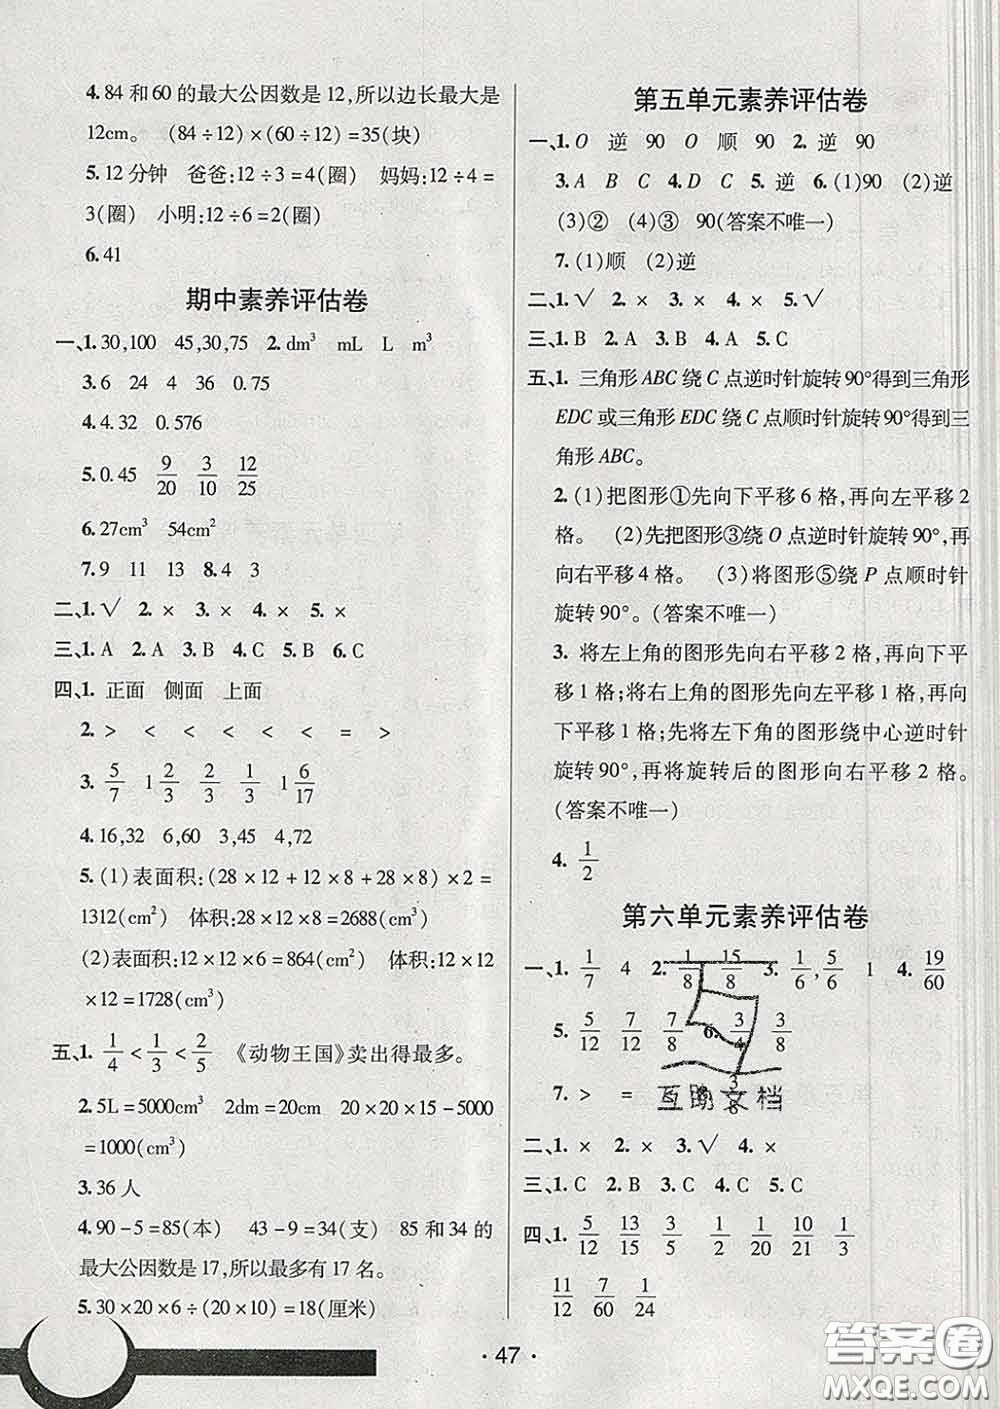 4. 84 和 60 的最大公因数是 12,所以边长最大是
12cm。 (84÷12)×(60÷12)=35(块)
5. 12 分钟 爸爸:12÷3=4(圈) 妈妈:12÷4=
3(圈) 小明:12÷6=2(圈)
6. 41
期中素养评估卷
一、1. 30,100 45,30,75 2. dm³ mL L m³
3. 6 24 4 36 0.75
4. 2.4 0.32 0.576
5. 0.45 9/20 3/10 12/25
6. 27cm³ 54cm²
7. 9 11 13 8. 4 3
二、1. √ 2. × 3. × 4. × 5. ×
三、1. A 2. A 3. B 4. C 5. B 6. C
四、1. 正面 侧面 上面
2. > < < < < < = >
3. 5/7 1 2/3 2/3 1/3 1 6/17
4. 16,32 6,60 3,45 4,72
5. (1)表面积:(28×12+12×8+28×8)×2=
1312(cm²) 体积:28×12×8=2688(cm³)
(2)表面积:12×12×6=864(cm²) 体积:12×12
×12=1728(cm³)
五、1. 1/4<1/3<2/5 《动物王国》卖出得最多。
2. 5L=5000cm³ 2dm=20cm 20×20×15-5000
=1000(cm³)
3. 36 人
4. 90-5=85(本) 43-9=34(支) 85 和 34 的
最大公因数是 17,所以最多有 17 名。
5. 30×20×6÷(20×10)=18(厘米)
第五单元素养评估卷
一、1. O 逆 90 O 顺 90 2. 逆 90
3. A B C 4. D C 5. 逆 6. (1)90 (2)逆
(3)② (4)③ 90(答案不唯一)
7. (1)顺 (2)逆
二、1. √ 2. × 3. × 4. × 5. √
三、1. B 2. A 3. A 4. A 5. C
五、1. 三角形 ABC 绕 C 点逆时针旋转 90°得到三角形
EDC 或三角形 EDC 绕 C 点顺时针旋转 90°得到三
角形 ABC。
2. (1)把图形①先向下平移 6 格,再向左平移 2
格。 (2)先把图形③绕 O 点逆时针旋转 90°,再
向右平移 4 格。 (3)将图形⑤绕 P 点顺时针
旋转 90°。(答案不唯一)
3. 将左上角的图形先向右平移 2 格,再向下平
移 1 格;将右上角的图形先向左平移 1 格,再向
下平移 1 格;先将左下角的图形绕中心逆时针
旋转 90°,再将旋转后的图形向右平移 2 格。
(答案不唯一)
4. 1/2
第六单元素养评估卷
一、1. 1/7 4 2. 1/8 15/8 3. 1/6,5/6 1 4. 19/60
5. 5/12 7/12 7/8 7/8 6. 3/4 3/8
7. > = 3/8
互助文档
二、1. × 2. × 3. √ 4. ×
三、1. C 2. B 3. C 4. C 5. C
四、1. 5/12 13/15 3/5 1/8 1/20 10/21 1/3
11/12 7/60 1/24
· 47 ·
答案圈
MXQE.COM